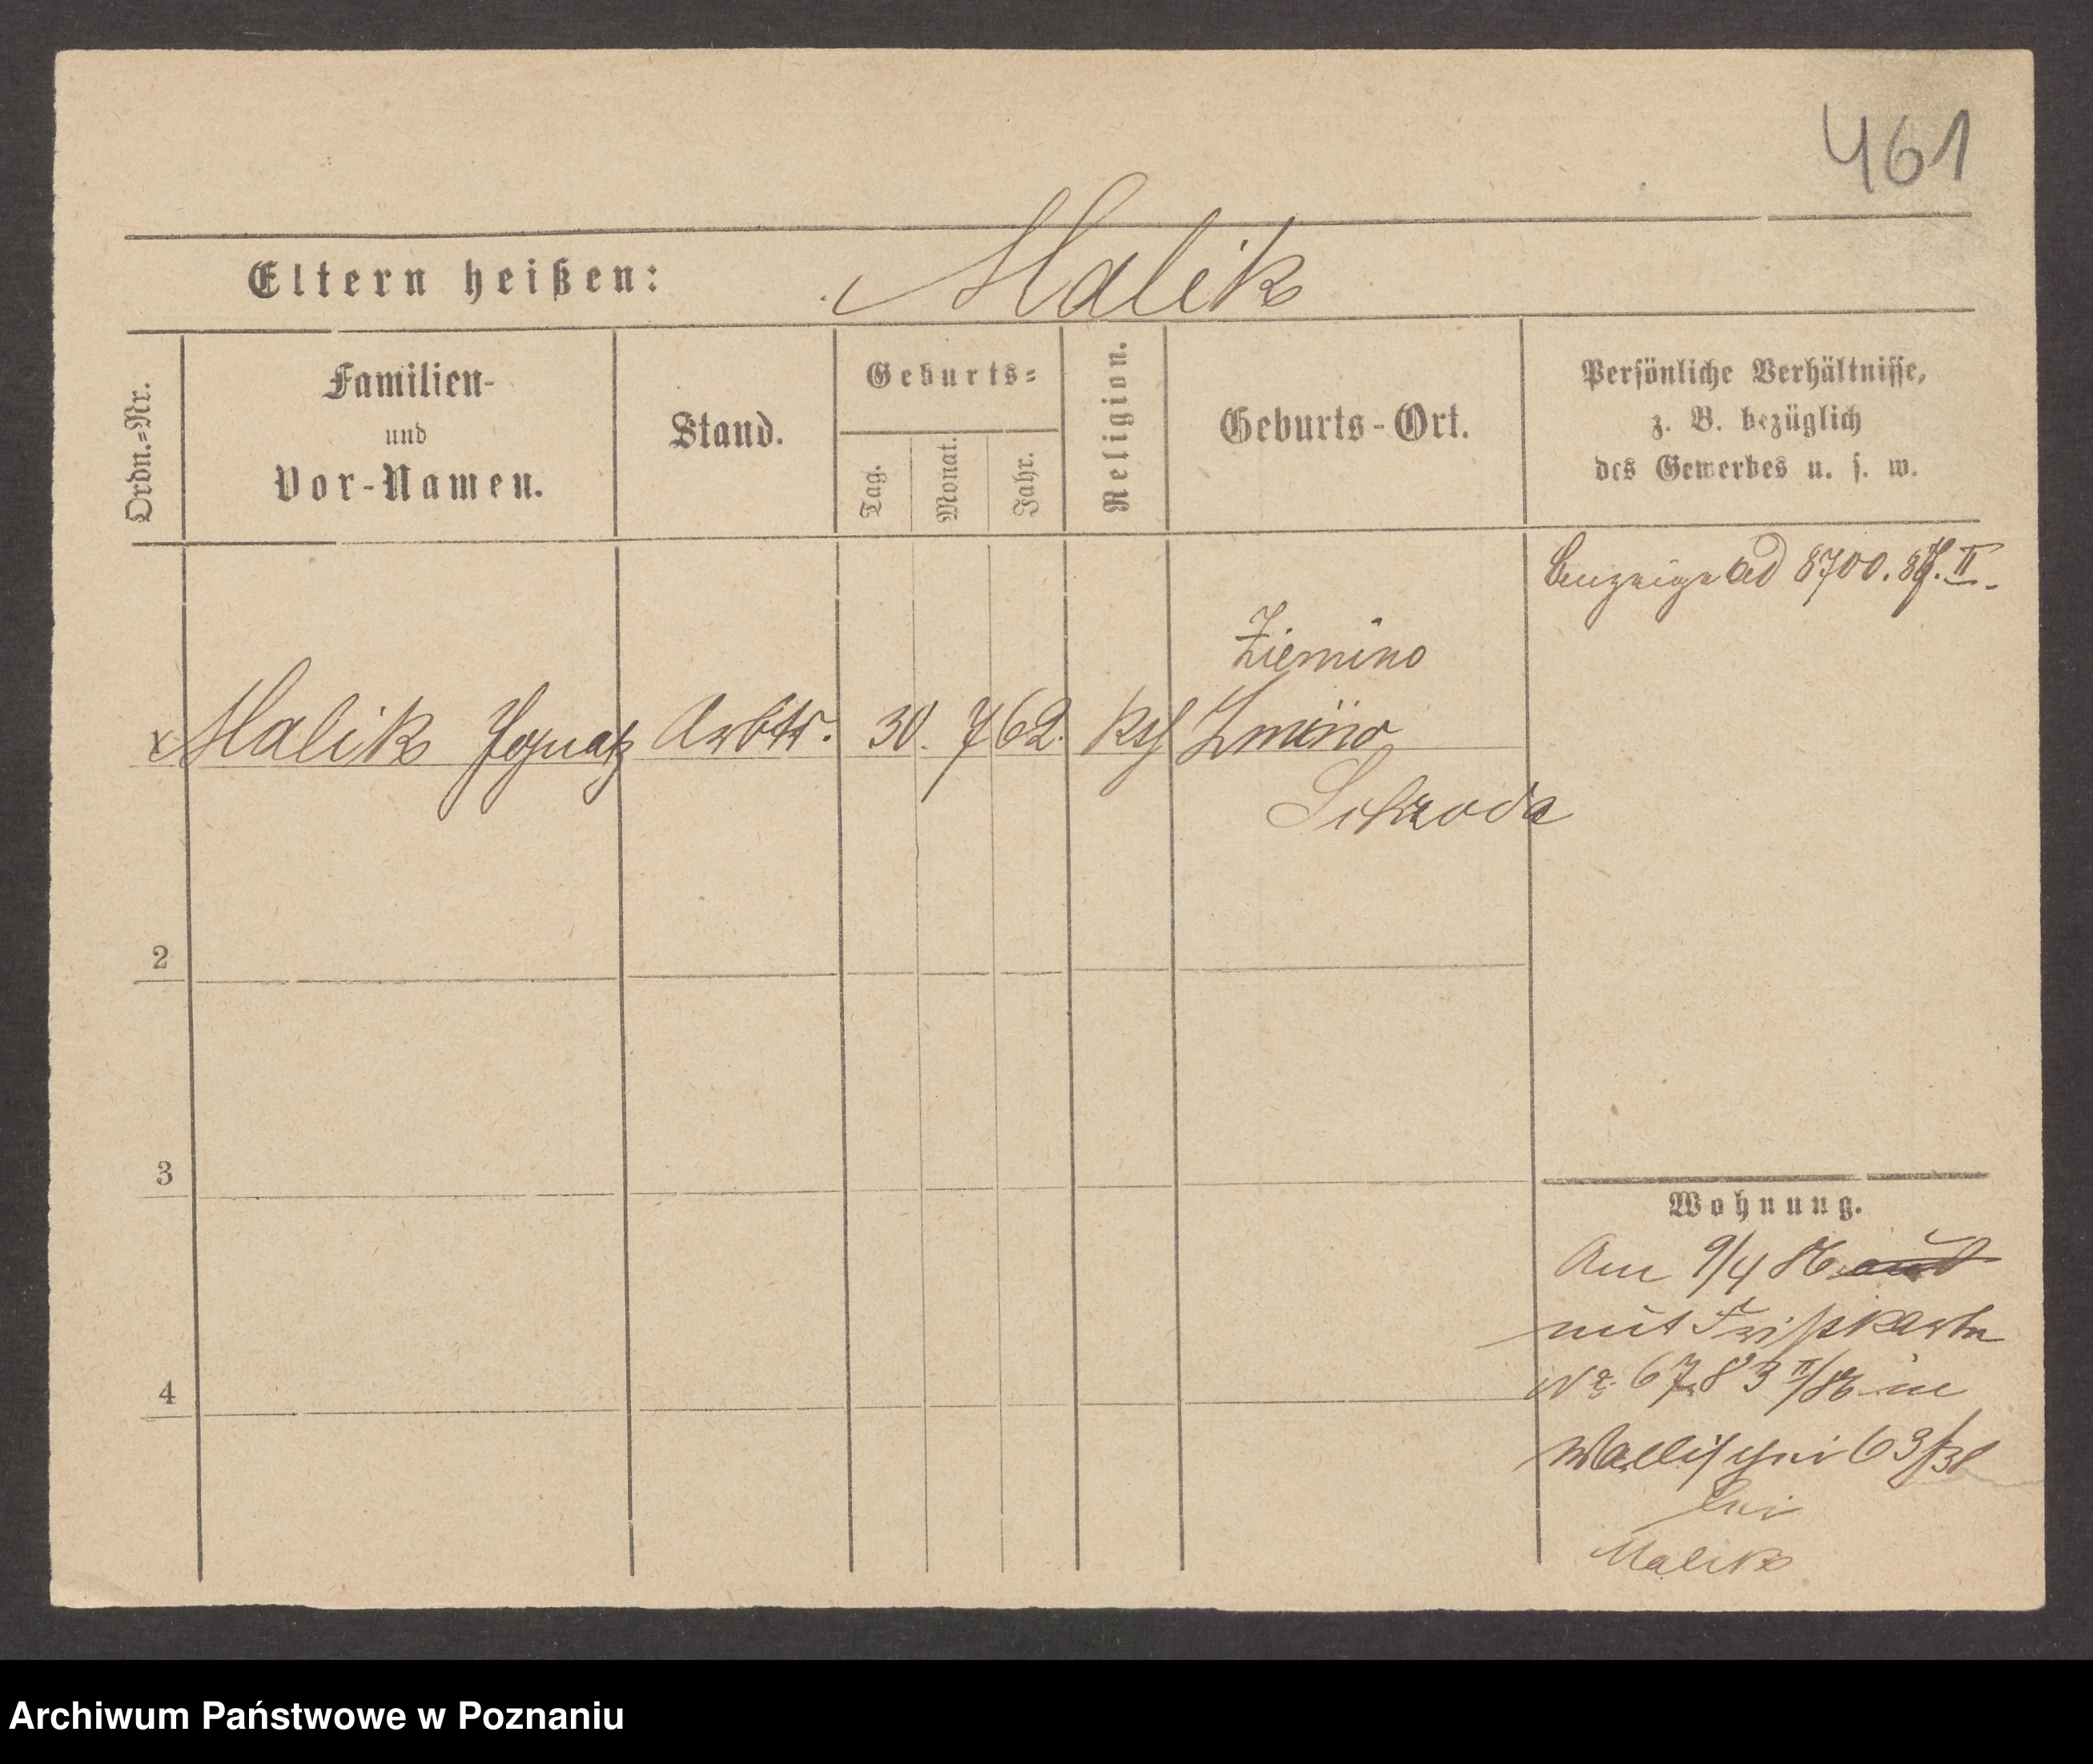 461
Eltern heißen: Malik
Ordn.=Nr.
Familien-
und
Vor-Namen.
Stand.
Geburts=
Tag.
Monat.
Jahr.
Religion.
Geburts-Ort.
Persönliche Verhältnisse,
z. B. bezüglich
des Gewerbes u. s. w.
ad 8700. II.
Ziemino
Malik Ignatz Arbtr. 30. 7 62. Kth
Schroda
2
3
4
Wohnung.
Am 9/4 86
mit Paßkarte
No 6783 II/86 in
Wallischei 63/
bei
Malik
Archiwum Państwowe w Poznaniu